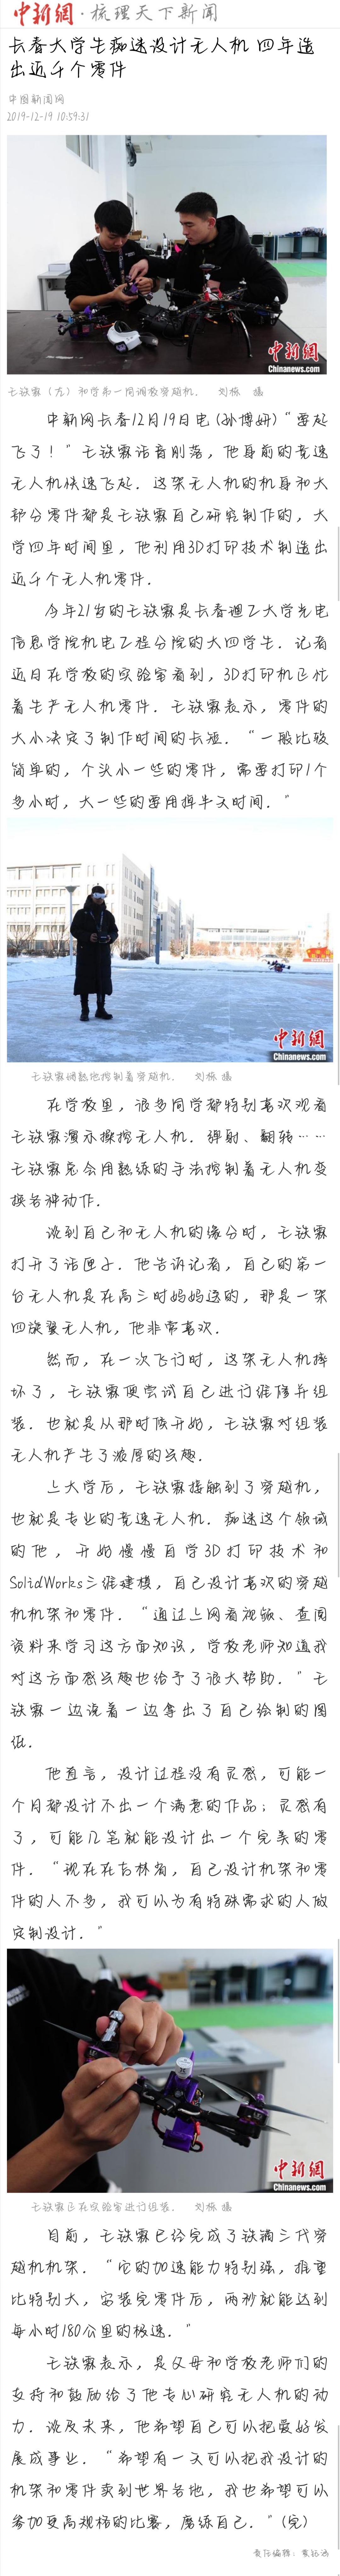 中新網·梳理天下新闻
长春大学生痴迷设计无人机 四年造
出近千个零件
中国新闻网
2019-12-19 10:59:31
中新網
Chinanews.com
王铁霖（左）和学弟一同调教穿越机。 刘栋 摄
中新网长春12月19日电 (孙博妍)“要起
飞了！”王铁霖话音刚落，他身前的竞速
无人机快速飞起。这架无人机的机身和大
部分零件都是王铁霖自己研究制作的，大
学四年时间里，他利用3D打印技术制造出
近千个无人机零件。
今年21岁的王铁霖是长春理工大学光电
信息学院机电工程分院的大四学生。记者
近日在学校的实验室看到，3D打印机正忙
着生产无人机零件。王铁霖表示，零件的
大小决定了制作时间的长短。“一般比较
简单的，个头小一些的零件，需要打印1个
多小时，大一些的要用掉半天时间。”
中新網
Chinanews.com
王铁霖娴熟地控制着穿越机。 刘栋 摄
在学校里，很多同学都特别喜欢观看
王铁霖演示操控无人机。弹射、翻转……
王铁霖总会用熟练的手法控制着无人机变
换各种动作。
谈到自己和无人机的缘分时，王铁霖
打开了话匣子。他告诉记者，自己的第一
台无人机是在高三时妈妈送的，那是一架
四旋翼无人机，他非常喜欢。
然而，在一次飞行时，这架无人机摔
坏了，王铁霖便尝试自己进行维修并组
装。也就是从那时候开始，王铁霖对组装
无人机产生了浓厚的兴趣。
上大学后，王铁霖接触到了穿越机，
也就是专业的竞速无人机。痴迷这个领域
的他，开始慢慢自学3D打印技术和
SolidWorks三维建模，自己设计喜欢的穿越
机机架和零件。“通过上网看视频、查阅
资料来学习这方面知识，学校老师知道我
对这方面感兴趣也给予了很大帮助。”王
铁霖一边说着一边拿出了自己绘制的图
纸。
他直言，设计过程没有灵感，可能一
个月都设计不出一个满意的作品；灵感有
了，可能几笔就能设计出一个完美的零
件。“现在在吉林省，自己设计机架和零
件的人不多，我可以为有特殊需求的人做
定制设计。”
中新网
Chinanews.com
王铁霖正在实验室进行组装。 刘栋 摄
目前，王铁霖已经完成了铁满三代穿
越机机架。“它的加速能力特别强，推重
比特别大，安装完零件后，两秒就能达到
每小时180公里的极速。”
王铁霖表示，是父母和学校老师们的
支持和鼓励给了他专心研究无人机的动
力。谈及未来，他希望自己可以把爱好发
展成事业。“希望有一天可以把我设计的
机架和零件卖到世界各地，我也希望可以
参加更高规格的比赛，磨练自己。”(完)
责任编辑：